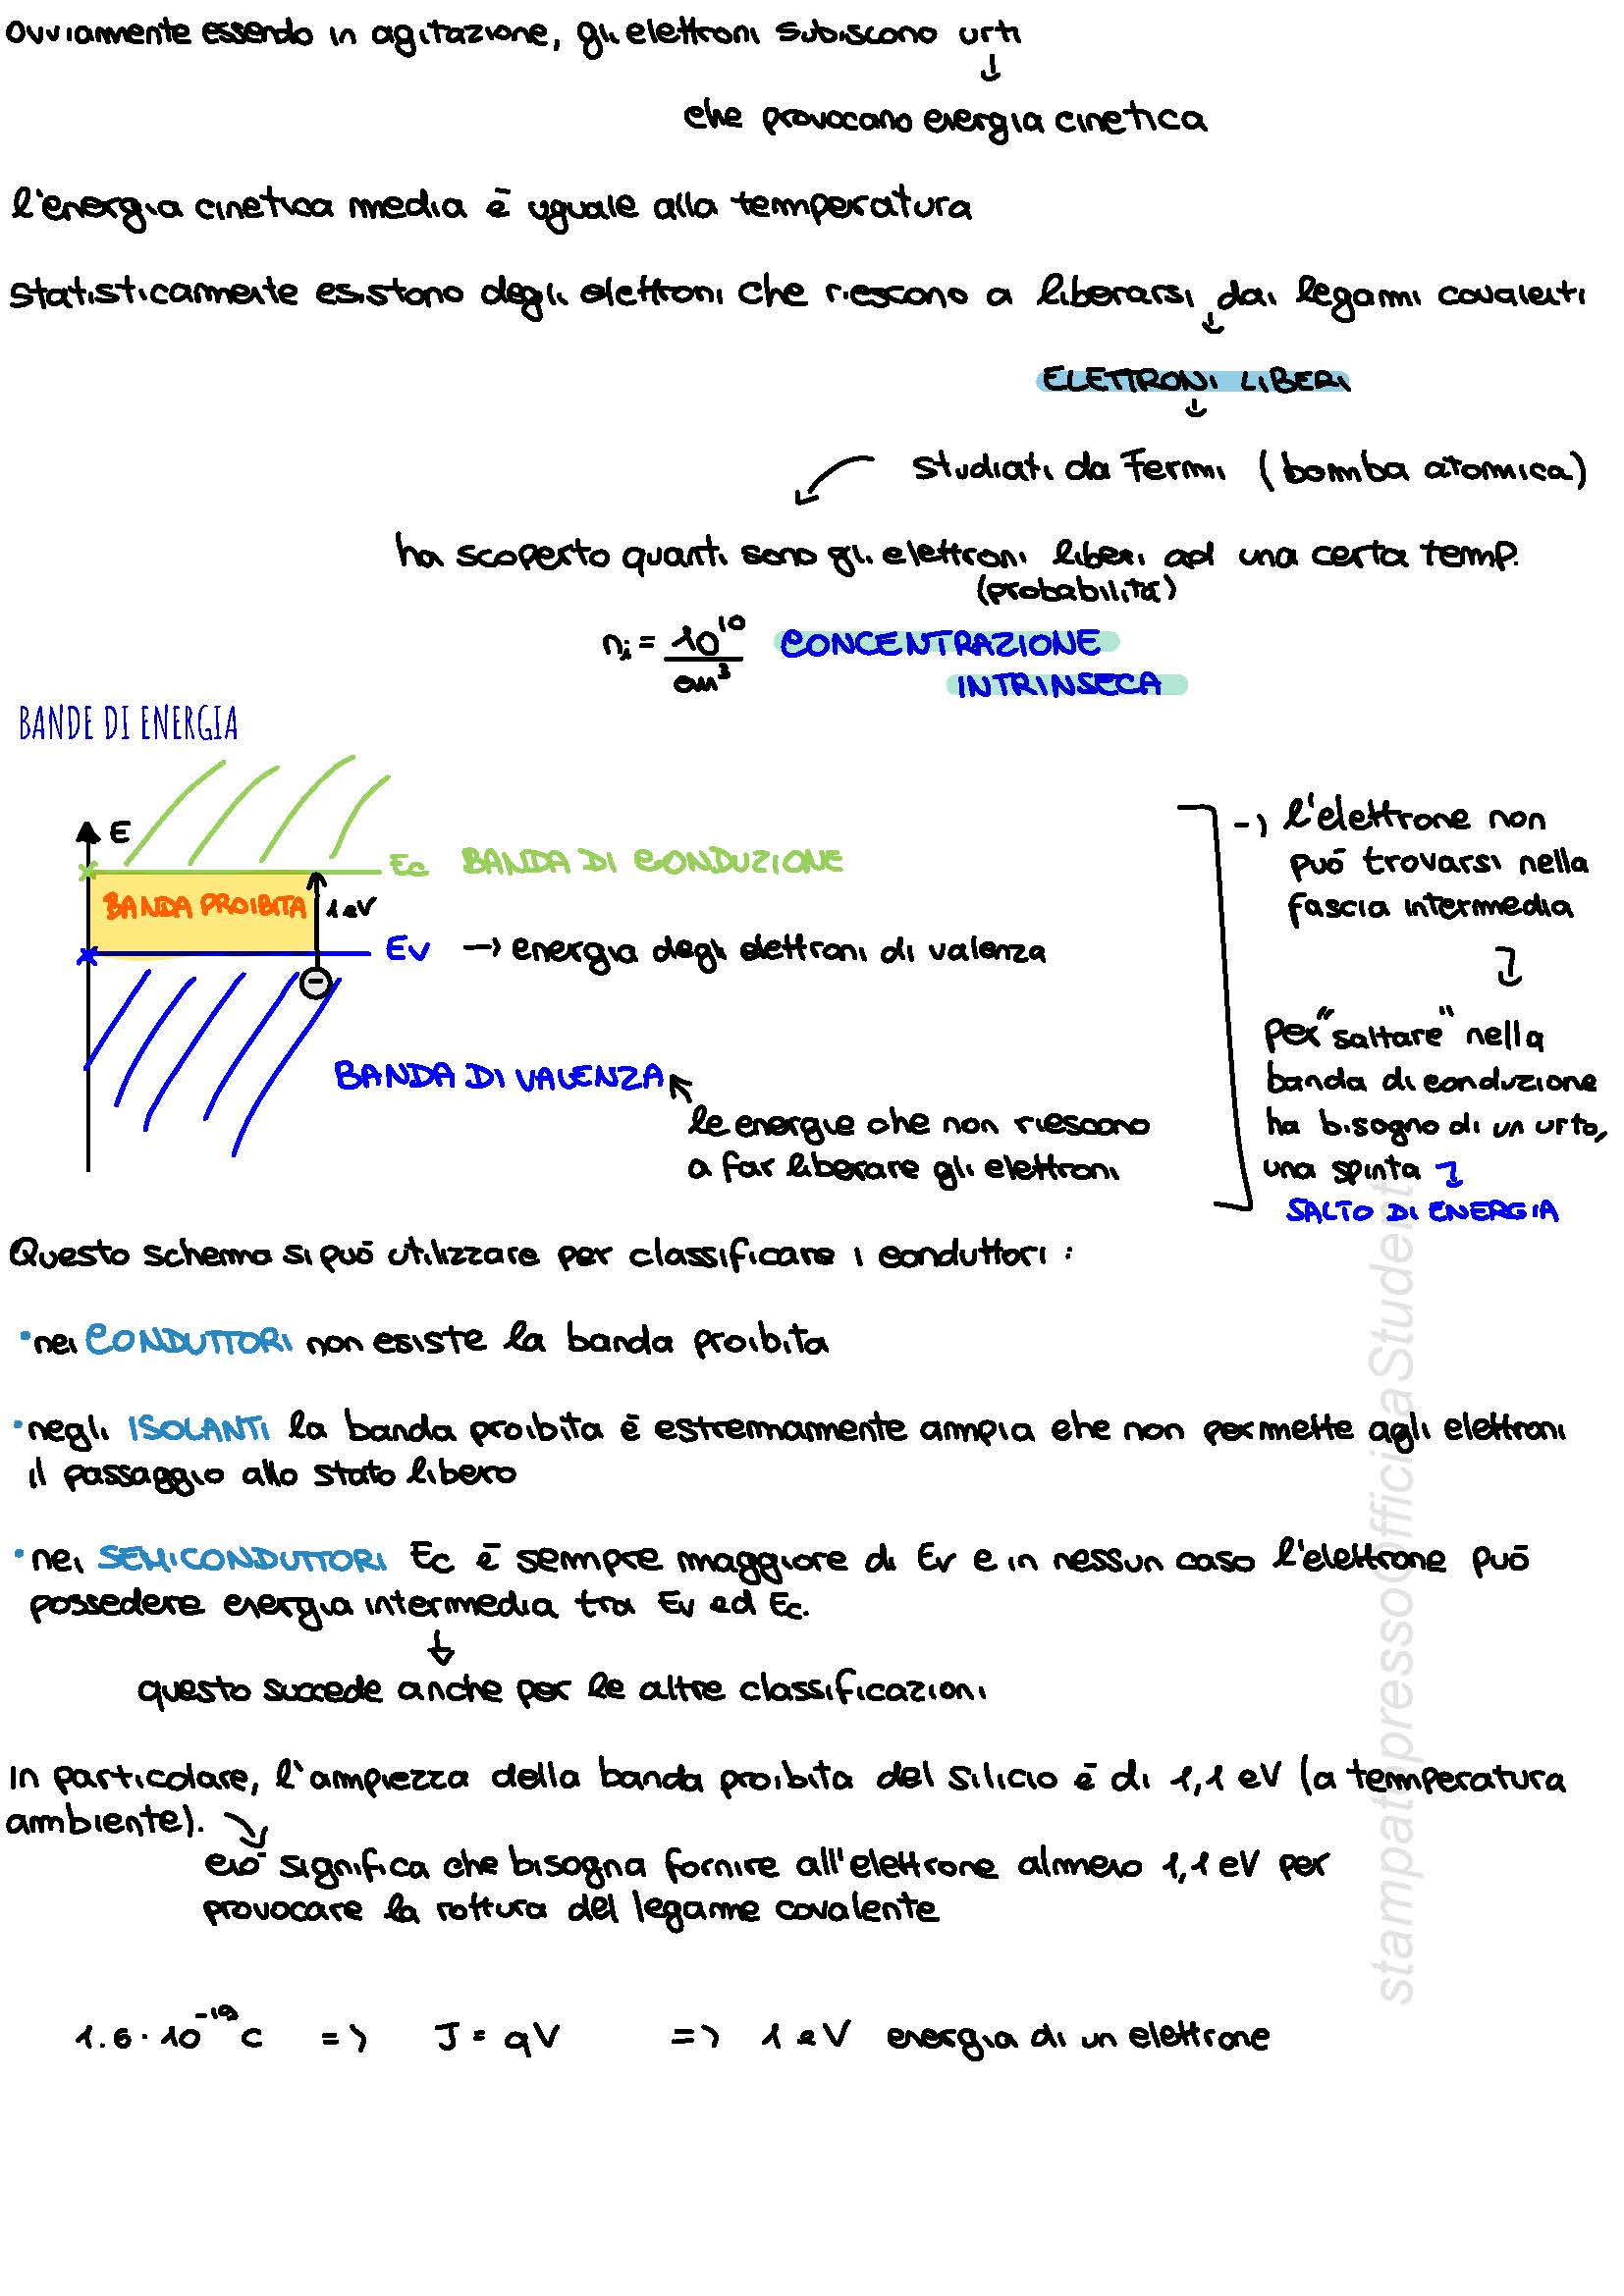 ovviamente essendo in agitazione, gli elettroni subiscono urti
↓
che provocano energia cinetica
l'energia cinetica media è uguale alla temperatura
statisticamente esistono degli elettroni che riescono a liberarsi dai legami covalenti
↓
ELETTRONI LIBERI
↓
studiati da Fermi (bomba atomica)
ha scoperto quanti sono gli elettroni liberi ad una certa temp.
(probabilità)
ni = 10^10 / cm^3 CONCENTRAZIONE
INTRINSECA
BANDE DI ENERGIA
E
Ec BANDA DI CONDUZIONE
BANDA PROIBITA 1 eV
Ev → energia degli elettroni di valenza
BANDA DI VALENZA
le energie che non riescono
a far liberare gli elettroni
→ l'elettrone non
può trovarsi nella
fascia intermedia
↓
per "saltare" nella
banda di conduzione
ha bisogno di un urto,
una spinta
SALTO DI ENERGIA
Questo schema si può utilizzare per classificare i conduttori :
• nei CONDUTTORI non esiste la banda proibita
• negli ISOLANTI la banda proibita è estremamente ampia che non permette agli elettroni
il passaggio allo stato libero
• nei SEMICONDUTTORI Ec è sempre maggiore di Ev e in nessun caso l'elettrone può
possedere energia intermedia tra Ev ed Ec.
↓
questo succede anche per le altre classificazioni
In particolare, l'ampiezza della banda proibita del silicio è di 1,1 eV (a temperatura
ambiente).
ciò significa che bisogna fornire all'elettrone almeno 1,1 eV per
provocare la rottura del legame covalente
1.6 · 10^-19 C => J = qV => 1 eV energia di un elettrone
stampatopressoOfficinaStudenti